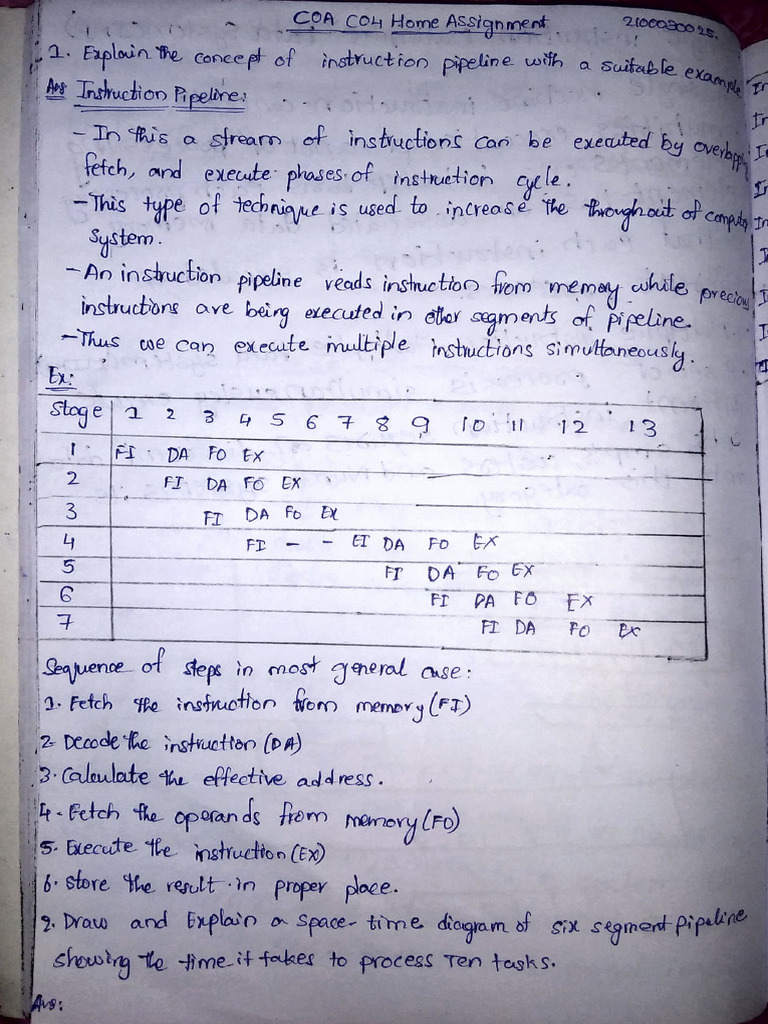 COA CO4 Home Assignment 2100030025.
1. Explain the concept of instruction pipeline with a suitable example
Ans Instruction Pipeline:
- In this a stream of instructions can be executed by overlapping
fetch, and execute phases of instruction cycle.
- This type of technique is used to increase the throughout of computer
system.
- An instruction pipeline reads instruction from memory while precious
instructions are being executed in other segments of pipeline.
- Thus we can execute multiple instructions simultaneously.
Ex:
Stage 1 2 3 4 5 6 7 8 9 10 11 12 13
1 FI DA FO EX
2 FI DA FO EX
3 FI DA FO EX
4 FI - - FI DA FO EX
5 FI DA FO EX
6 FI DA FO EX
7 FI DA FO EX
Sequence of steps in most general case:
1. Fetch the instruction from memory (FI)
2. Decode the instruction (DA)
3. Calculate the effective address.
4. Fetch the operands from memory (FO)
5. Execute the instruction (EX)
6. Store the result in proper place.
2. Draw and Explain a space-time diagram of six segment pipeline
showing the time it takes to process Ten tasks.
Ans: